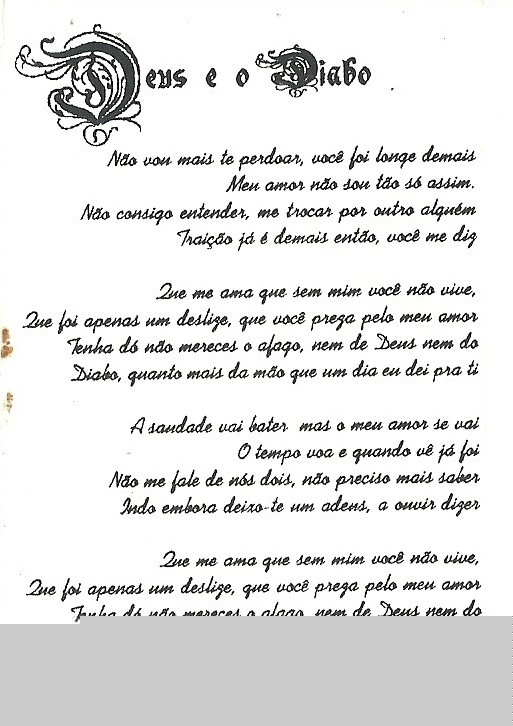 Deus e o Diabo
Não vou mais te perdoar, você foi longe demais
Meu amor não sou tão só assim.
Não consigo entender, me trocar por outro alguém
Traição já é demais então, você me diz
Que me ama que sem mim você não vive,
Que foi apenas um deslize, que você preza pelo meu amor
Tenha dó não mereces o afago, nem de Deus nem do
Diabo, quanto mais da mão que um dia eu dei pra ti
A saudade vai bater mas o meu amor se vai
O tempo voa e quando vê já foi
Não me fale de nós dois, não preciso mais saber
Indo embora deixo-te um adeus, a ouvir dizer
Que me ama que sem mim você não vive,
Que foi apenas um deslize, que você preza pelo meu amor
Tenha dó não mereces o afago, nem de Deus nem do